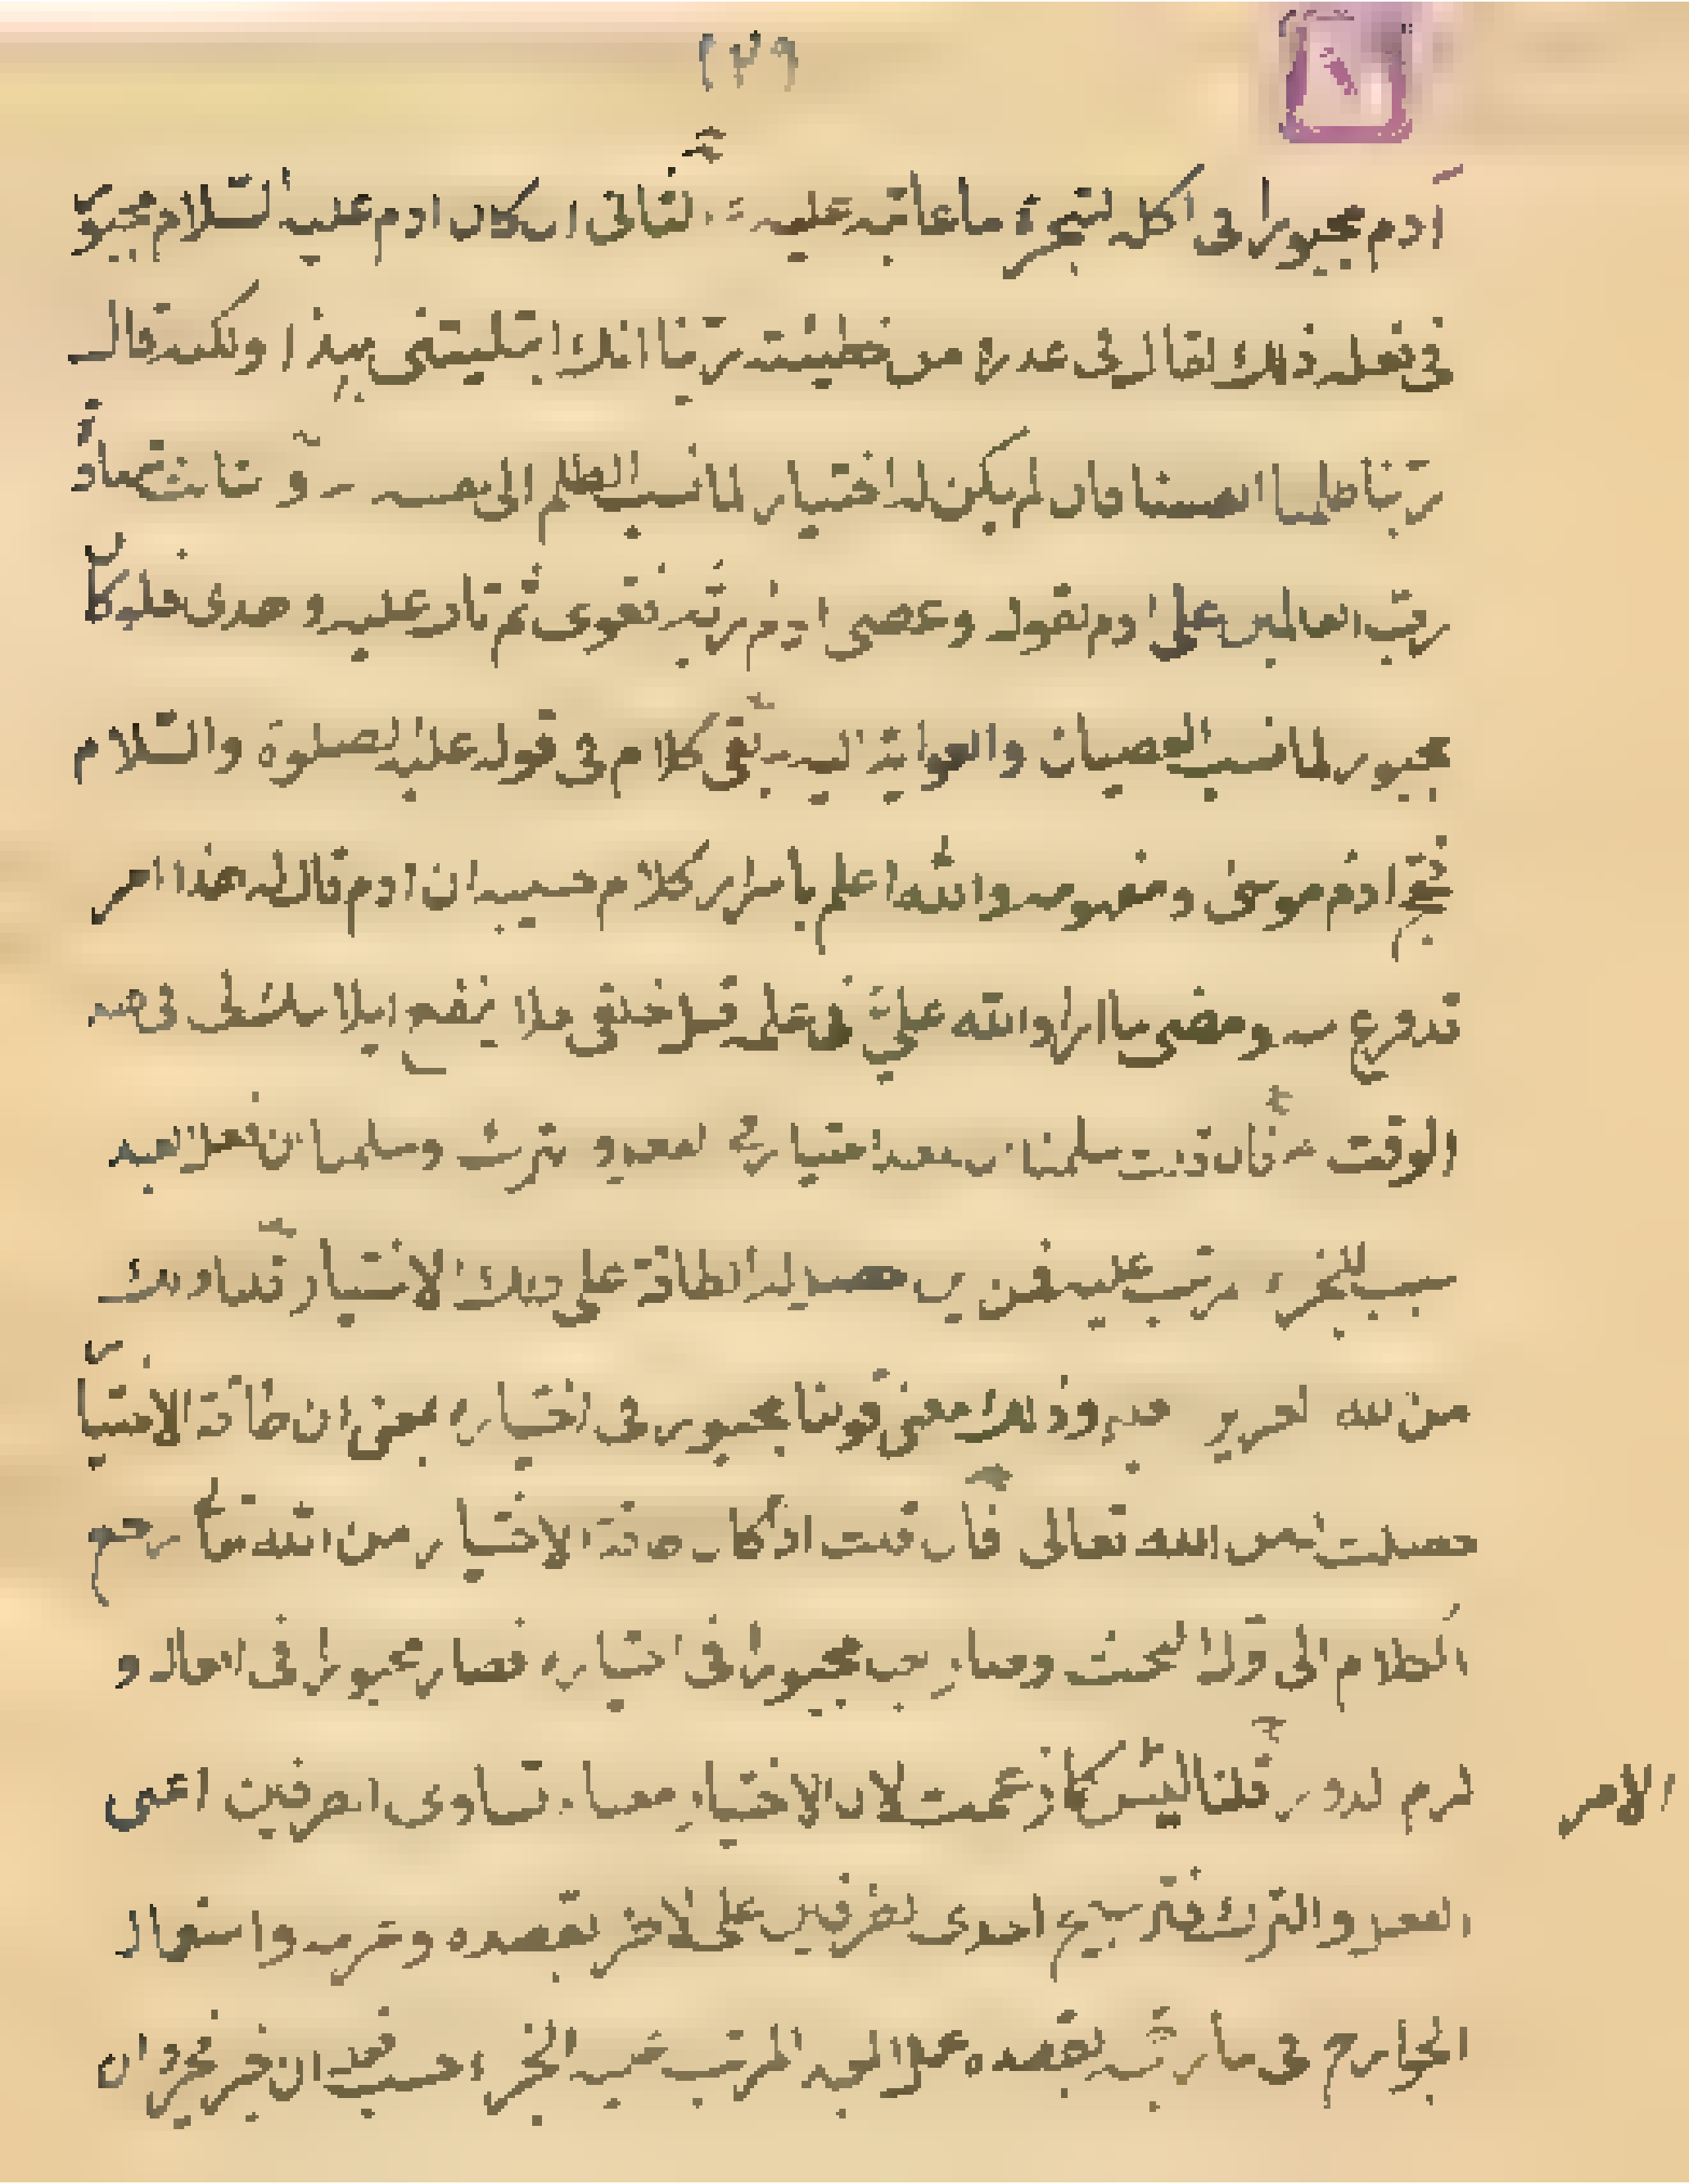 (٢٩)
آدم مجبورا فى اكل الشجرة ما عاتبه عليه الثانى ان كان ادم عليه السلام مجبو
فى فعله ذلك لقال فى عذره من خطيئته ربنا انك ابتليتنى بهذا ولكنه قال
ربنا ظلمنا انفسنا فان لم يكن له اختيار لما نسب الظلم الى نفسه
رب العالمين على ادم بقوله وعصى ادم ربه فغوى ثم تاب عليه وهدى فلو كا
مجبور لما نسب العصيان والغواية اليه بقى كلام فى قوله عليه الصلوة والسلام
فحج ادم موسى ومفهومه والله اعلم باسرار كلام حبيبه ان ادم قال له هذا امر
قد فرغ منه ومضى مما اراد الله على فى علمه قبل خلقى فلا ينفع ايلامك لى فى هذ
الوقت فان قلت سلمنا ان للعبد اختيار فى الفعل و الترك وسلمنا ان فعل العبد
سبب للجزاء مرتب عليه فمن اين حصل له الطاقة على ذلك الاختيار قلنا ذلك
من الله العزيز وذلك معنى قولنا مجبور فى اختياره بمعنى ان طاقة الاختيا
حصلت من الله تعالى فان قلت اذ كان طاقة الاختيار من الله تعالى رجع
الكلام الى اول البحث وصار العبد مجبورا فى اختياره فصار مجبورا فى افعاله و
لزم الدور قلنا ليس كما زعمت لان الاختيار معناه تساوى الطرفين اعنى
الامر
الفعل والترك فترجيح احدى الطرفين على الاخر بقصده وعزمه واستعمال
الجوارح فى مارتبه بقصده عمل العبد المرتب عليه الجزاء فحسب ان خير فخير وان